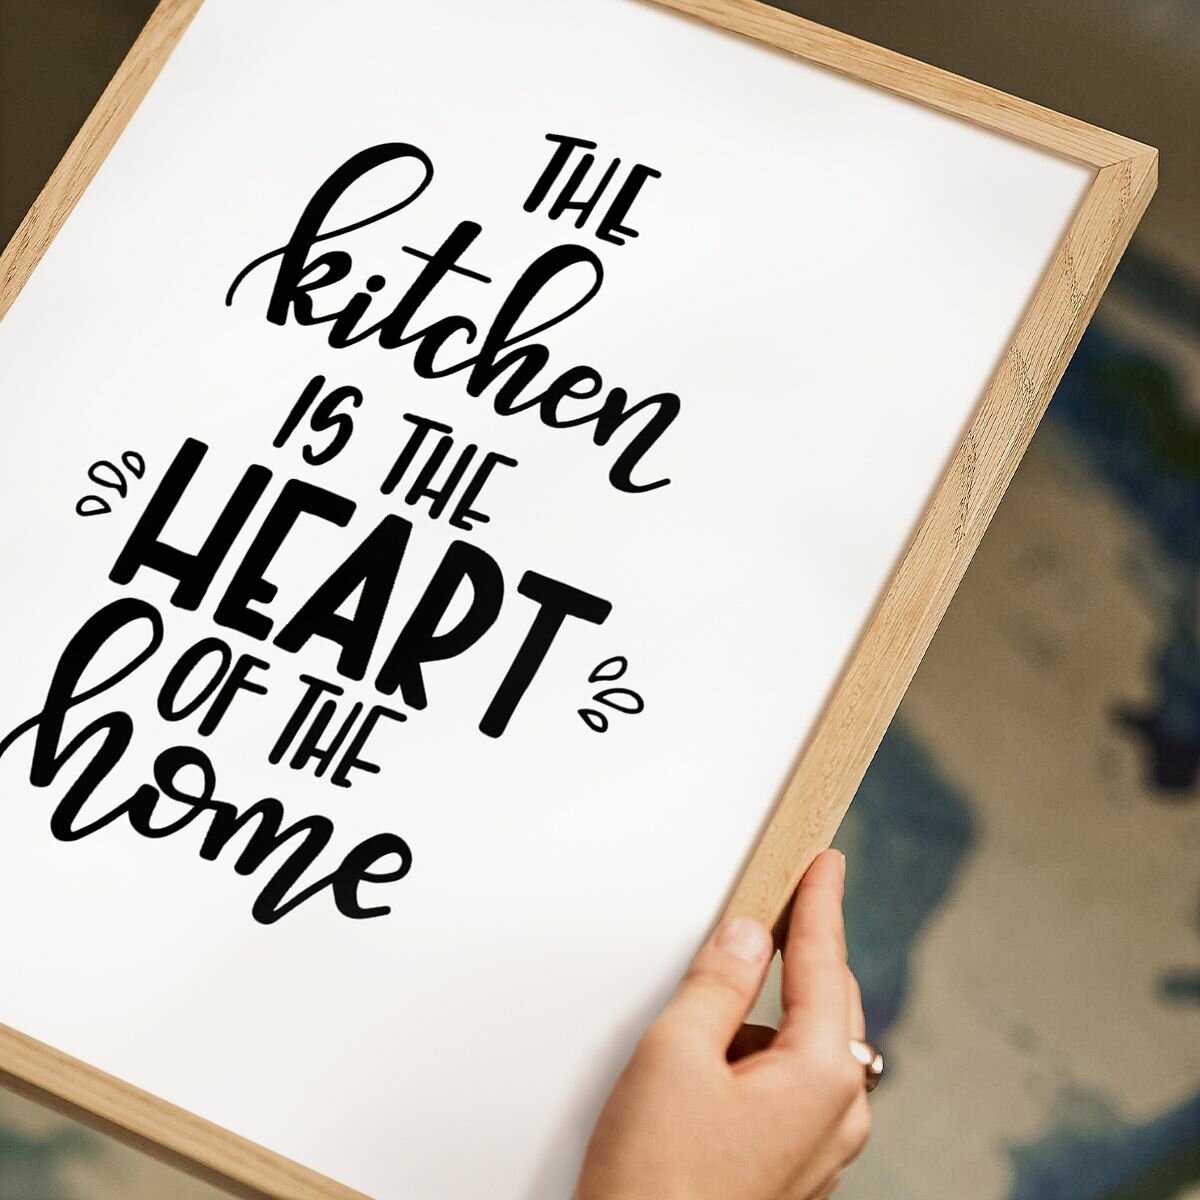 THE
kitchen
IS THE
HEART
OF THE
home